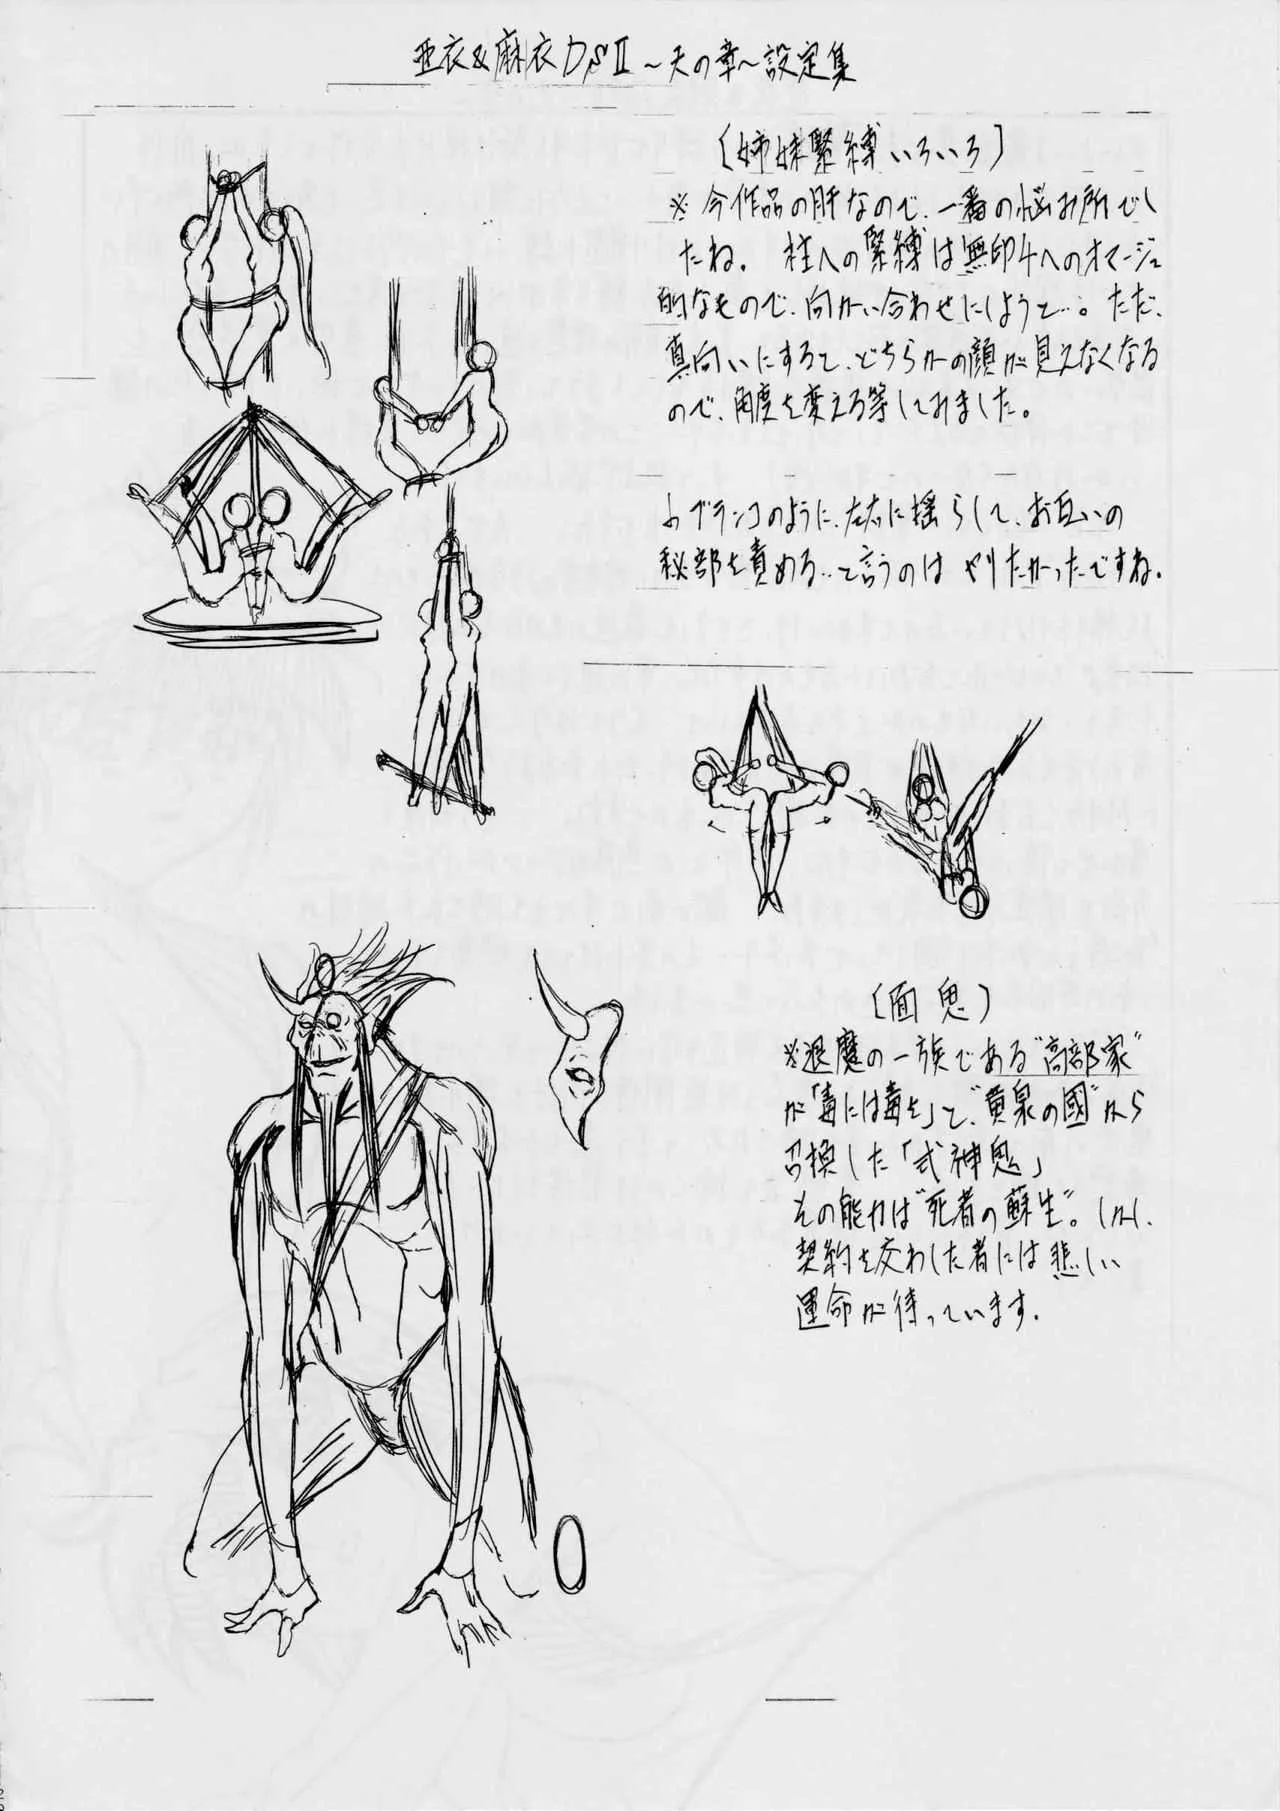 亜衣&麻衣DSⅡ～天の章～設定集
〔姉妹緊縛いろいろ〕
※今作品の肝なので、一番の悩み所でし
たね。柱への緊縛は無印4へのオマージュ
的なもので、向かい合わせにしようと…。ただ、
真向いにすると、どちらかの顔が見えなくなる
ので、角度を変える等してみました。
ブランコのように、左右に揺らして、お互いの
秘部を責める…と言うのは やりたかったですね。
〔面鬼〕
※退魔の一族である"高部家"
が「毒には毒を」と、"黄泉の國"から
召換した「式神鬼」
その能力は"死者の蘇生"。しかし、
契約を交わした者には悲しい
運命が待っています。